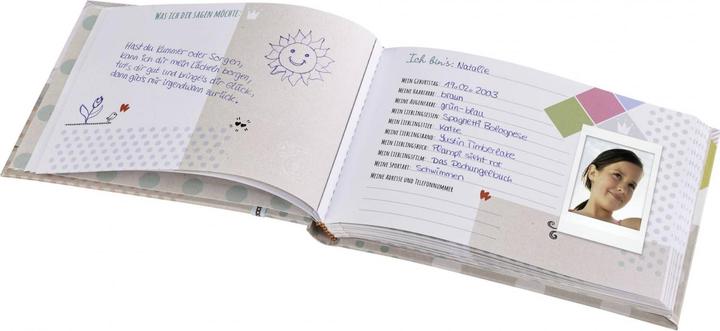 WAS ICH DIR SAGEN MÖCHTE:
Hast du Kummer oder Sorgen,
kann ich dir mein Lächeln borgen,
tut's dir gut und bringt's dir Glück,
dann gib's mir irgendwann zurück.
Ich bin's: Natalie
MEIN GEBURTSTAG: 19.02.2003
MEINE HAARFARBE: braun
MEINE AUGENFARBE: grün-blau
MEIN LIEBLINGSESSEN: Spaghetti Bolognese
MEIN LIEBLINGSTIER: Katze
MEINE LIEBLINGSBAND: Justin Timberlake
MEIN LIEBLINGSBUCH: Plampi sieht rot
MEIN LIEBLINGSFILM: Das Dschungelbuch
MEINE SPORTART: Schwimmen
MEINE ADRESSE UND TELEFONNUMMER